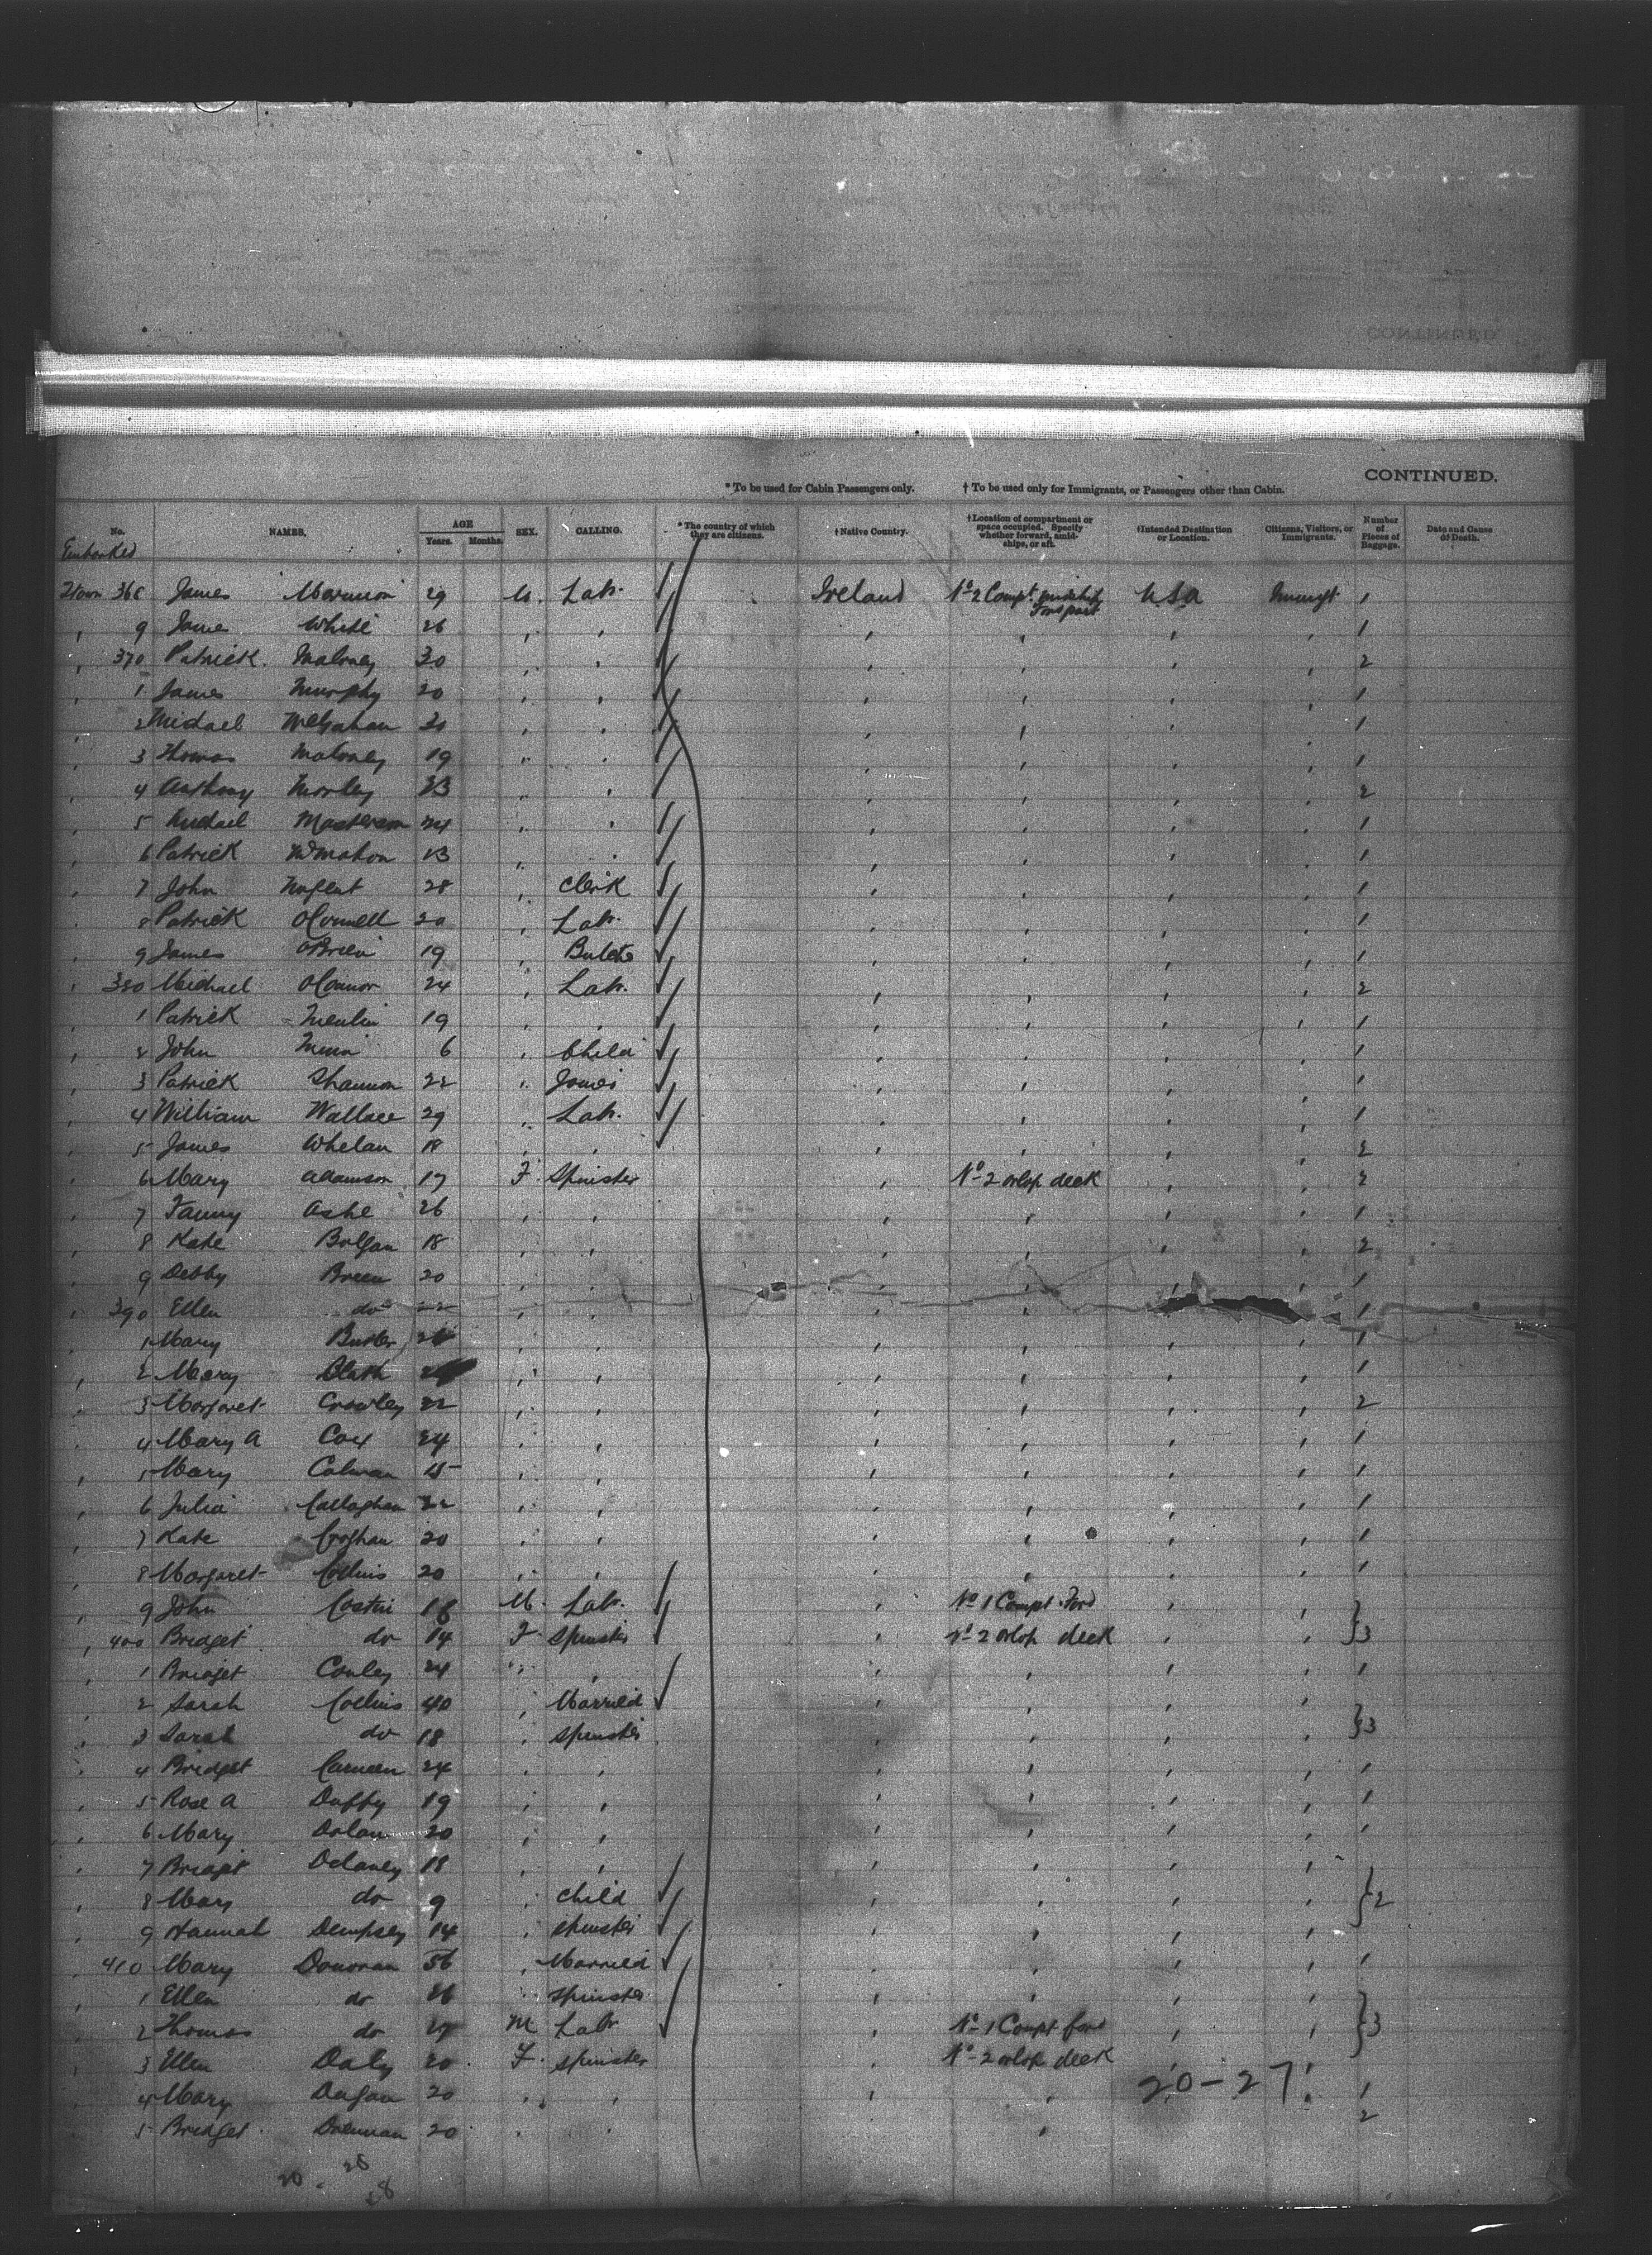 CONTINUED.
* To be used for Cabin Passengers only. † To be used only for Immigrants, or Passengers other than Cabin.
No. NAMES. AGE Years. Months. SEX. CALLING. * The country of which they are citizens. † Native Country. † Location of compartment or space occupied. Specify whether forward, amidships, or aft. † Intended Destination or Location. Citizens, Visitors, or Immigrants. Number of Pieces of Baggage. Date and Cause of Death.
Embarked
368 James 29 M. Lab. Ireland No 2 Compt. USA 1
Ford part
9 James White 26 1
370 Patrick Maloney 30 2
1 James Murphy 20 1
2 Michael 1
3 Thomas Maloney 19 1
4 Anthony Morley 23 2
5 Michael Masterson 24 1
6 Patrick McMahon 1
7 John Nugent 28 Clerk 1
8 Patrick OConnell 20 Lab. 1
9 James OBrien 19 1
380 Michael OConnor 24 Lab. 2
1 Patrick 19 1
2 John 6 Child 1
3 Patrick Shannon 22 1
4 William Wallace 29 Lab. 1
5 James Whelan 18 2
6 Mary Adamson 17 F. Spinster No 2 orlop deck 2
7 Fanny Ashe 26 1
8 Kate 18 2
9 Debby Breen 20 1
390 Ellen do 22 1
1 Mary Butler 1
2 Mary 1
3 Margaret Crowley 22 2
4 Mary A Cox 24 1
5 Mary Colman 1
6 Julia Callaghan 22 1
7 Kate 20 1
8 Margaret Collins 20 1
9 John M. Lab. No 1 Compt. Ford
400 Bridget do 14 F. Spinster No 2 orlop deck } 3
1 Bridget Conley 24 1
2 Sarah Collins 40 Married
3 Sarah do 18 Spinster } 3
4 Bridget 24 1
5 Rose A Duffy 19 1
6 Mary Dolan 20 1
7 Bridget Delaney 18
8 Mary do 9 Child } 2
9 Hannah Dempsey 14 Spinster
410 Mary Donovan 56 Married 1
1 Ellen do 26 Spinster
2 Thomas do M Lab No 1 Compt ford } 3
3 Ellen Daly 20 F. Spinster No 2 orlop deck
4 Mary Dugan 20 20-27 1
5 Bridget Drennan 20 2
20 28